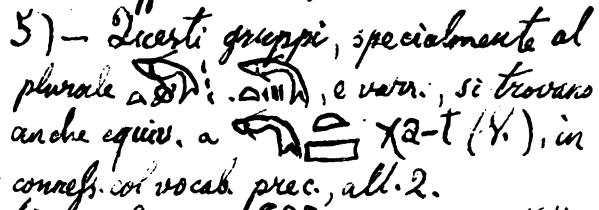 5) — Questi gruppi, specialmente al
plurale , e varr., si trovano
anche equiv. a χa-t (V.), in
conness. col vocab. prec., all. 2.